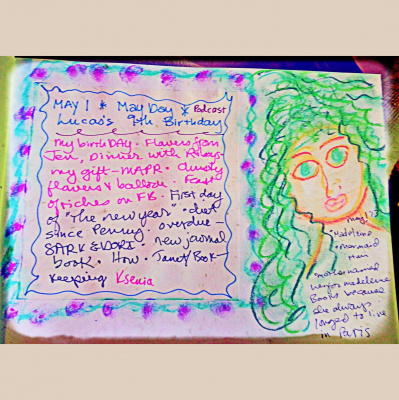 MAY 1 * May Day * Podcast
Lucas's 9th. Birthday
My birthday. Flowers from
Jen, Dinner with
my gift - NAPR.
flowers & balloon.
of riches on FB. First day
of "The new year" "diet
since Penny. overdue -
SPARK & DORA. new journal
book. How. Book-
keeping Ksenia
May 1
"Madeline"
mermaid
Hair
mother named
her for Madeleine
Books because
she always
longed to live
in Paris